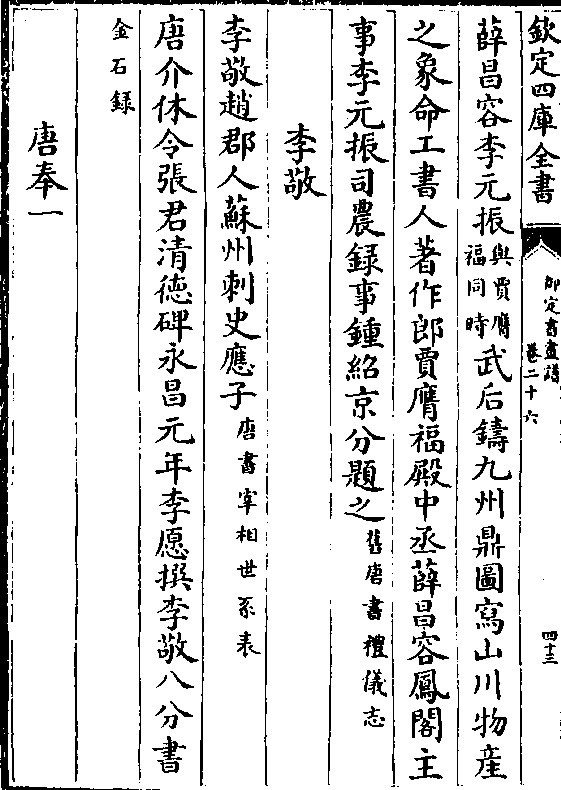 欽定四庫全書
御定書畫譜
卷二十六
四十三
薛昌容李元振與賈膺福同時武后鑄九州鼎圖寫山川物産
之象命工書人著作郎賈膺福殿中丞薛昌容鳳閣主
事李元振司農録事鍾紹京分題之舊唐書禮儀志
李敬
李敬趙郡人蘇州刺史應子唐書宰相世系表
唐介休令張君清德碑永昌元年李愿撰李敬八分書
金石録
唐奉一